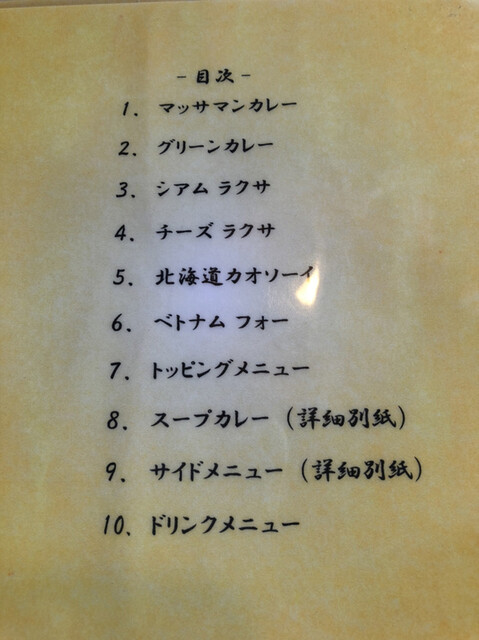 -目次-
1. マッサマンカレー
2. グリーンカレー
3. シアム ラクサ
4. チーズ ラクサ
5. 北海道カオソーイ
6. ベトナム フォー
7. トッピングメニュー
8. スープカレー（詳細別紙）
9. サイドメニュー（詳細別紙）
10. ドリンクメニュー